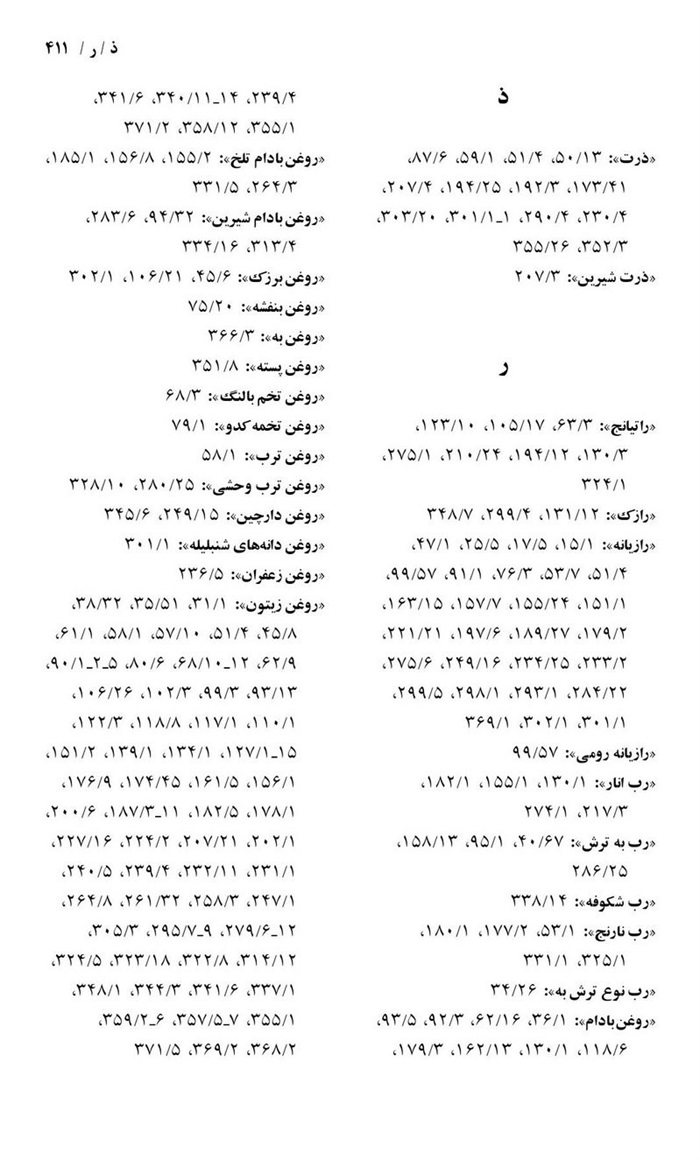 ذ / ر / ۴۱۱
ذ
«ذرت»: ۵۰/۱۳، ۵۱/۴، ۵۹/۱، ۸۷/۶،
۱۷۳/۴۱، ۱۹۲/۳، ۱۹۴/۲۵، ۲۰۷/۴،
۲۳۰/۴، ۲۹۰/۴، ۳۰۱/۱_۱، ۳۰۳/۲۰،
۳۵۲/۳، ۳۵۵/۲۶
«ذرت شیرین»: ۲۰۷/۳
ر
«راتیانج»: ۶۳/۳، ۱۰۵/۱۷، ۱۲۳/۱۰،
۱۳۰/۳، ۱۹۴/۱۲، ۲۱۰/۲۴، ۲۷۵/۱،
۳۲۴/۱
«رازک»: ۱۳۱/۱۲، ۲۹۹/۴، ۳۴۸/۷
«رازیانه»: ۱۵/۱، ۱۷/۵، ۲۵/۵، ۴۷/۱،
۵۱/۴، ۵۳/۷، ۷۶/۳، ۹۱/۱، ۹۹/۵۷،
۱۵۱/۱، ۱۵۵/۲۴، ۱۵۷/۷، ۱۶۳/۱۵،
۱۷۹/۲، ۱۸۹/۲۷، ۱۹۷/۶، ۲۲۱/۲۱،
۲۳۳/۲، ۲۳۴/۲۵، ۲۴۹/۱۶، ۲۷۵/۶،
۲۸۴/۲۲، ۲۹۳/۱، ۲۹۸/۱، ۲۹۹/۵،
۳۰۱/۱، ۳۰۲/۱، ۳۶۹/۱
«رازیانه رومی»: ۹۹/۵۷
«رب انار»: ۱۳۰/۱، ۱۵۵/۱، ۱۸۲/۱،
۲۱۷/۳، ۲۷۴/۱
«رب به ترش»: ۴۰/۶۷، ۹۵/۱، ۱۵۸/۱۳،
۲۸۶/۲۵
«رب شکوفه»: ۳۳۸/۱۴
«رب نارنج»: ۵۳/۱، ۱۷۷/۲، ۱۸۰/۱،
۳۲۵/۱، ۳۳۱/۱
«رب نوع ترش به»: ۳۴/۲۶
«روغن بادام»: ۳۶/۱، ۶۲/۱۶، ۹۲/۳، ۹۳/۵،
۱۱۸/۶، ۱۳۰/۱، ۱۶۲/۱۳، ۱۷۹/۳،
۲۳۹/۴، ۳۴۰/۱۱_۱۴، ۳۴۱/۶،
۳۵۵/۱، ۳۵۸/۱۲، ۳۷۱/۲
«روغن بادام تلخ»: ۱۵۵/۲، ۱۵۶/۸، ۱۸۵/۱،
۲۶۴/۳، ۳۳۱/۵
«روغن بادام شیرین»: ۹۴/۳۲، ۲۸۳/۶،
۳۱۳/۴، ۳۳۴/۱۶
«روغن برزک»: ۴۵/۶، ۱۰۶/۲۱، ۳۰۲/۱
«روغن بنفشه»: ۷۵/۲۰
«روغن به»: ۳۶۶/۳
«روغن پسته»: ۳۵۱/۸
«روغن تخم بالنگ»: ۶۸/۳
«روغن تخمه کدو»: ۷۹/۱
«روغن ترب»: ۵۸/۱
«روغن ترب وحشی»: ۲۸۰/۲۵، ۳۲۸/۱۰
«روغن دارچین»: ۲۴۹/۱۵، ۳۴۵/۶
«روغن دانه‌های شنبلیله»: ۳۰۱/۱
«روغن زعفران»: ۲۳۶/۵
«روغن زیتون»: ۳۱/۱، ۳۵/۵۱، ۳۸/۳۲،
۴۵/۸، ۵۱/۴، ۵۷/۱۰، ۵۸/۱، ۶۱/۱،
۶۲/۹، ۶۸/۱۰_۱۲، ۸۰/۶، ۹۰/۱_۲_۵،
۹۳/۱۳، ۹۹/۳، ۱۰۲/۳، ۱۰۶/۲۶،
۱۱۰/۱، ۱۱۷/۱، ۱۱۸/۸، ۱۲۲/۳،
۱۲۷/۱_۱۵، ۱۳۴/۱، ۱۳۹/۱، ۱۵۱/۲،
۱۵۶/۱، ۱۶۱/۵، ۱۷۴/۴۵، ۱۷۶/۹،
۱۷۸/۱، ۱۸۲/۵، ۱۸۷/۳_۱۱، ۲۰۰/۶،
۲۰۲/۱، ۲۰۷/۲۱، ۲۲۴/۲، ۲۲۷/۱۶،
۲۳۱/۱، ۲۳۲/۱۱، ۲۳۹/۴، ۲۴۰/۵،
۲۴۷/۱، ۲۵۸/۳، ۲۶۱/۳۲، ۲۶۴/۸،
۲۷۹/۶_۱۲، ۲۹۵/۷_۹، ۳۰۵/۳،
۳۱۴/۱۲، ۳۲۲/۸، ۳۲۳/۱۸، ۳۲۴/۵،
۳۳۷/۱، ۳۴۱/۶، ۳۴۴/۳، ۳۴۸/۱،
۳۵۵/۱، ۳۵۷/۵_۷، ۳۵۹/۲_۶،
۳۶۸/۲، ۳۶۹/۲، ۳۷۱/۵